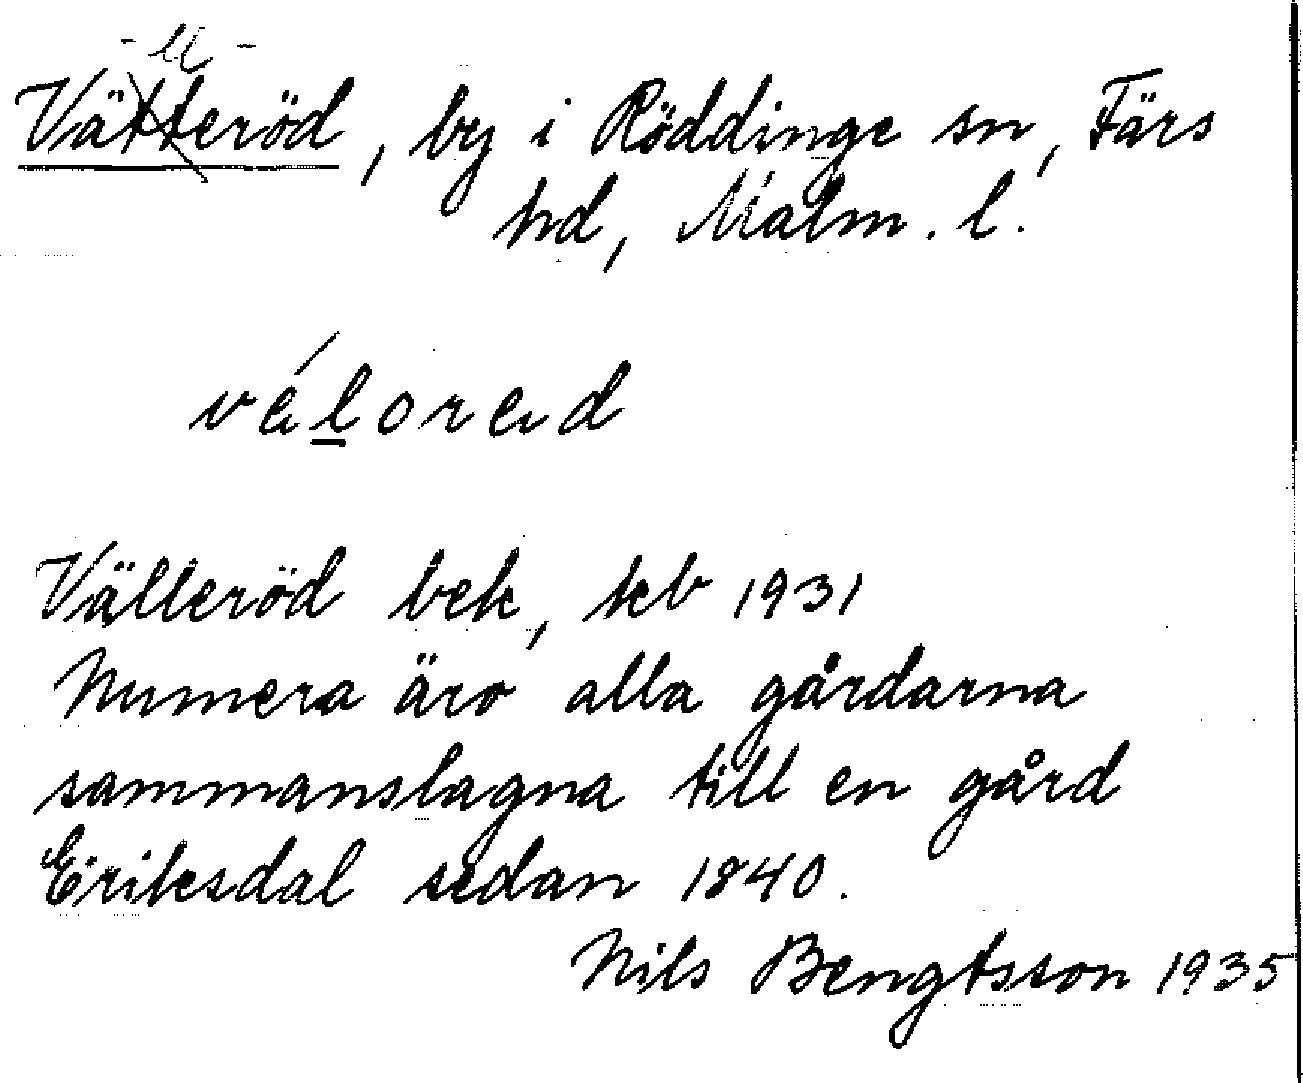 - ll -
Vätteröd, by i Röddinge sn, Färs
hd, Malm. l.
vä́lorəd
Välleröd bek, kb 1931
Numera äro alla gårdarna
sammanslagna till en gård
Eriksdal sedan 1840.
Nils Bengtsson 1935